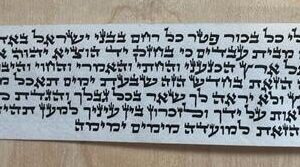 לי כל בכור פטר כל רחם בבני ישראל באדם
מבית עבדים כי בחזק יד הוציא יהוה
אל ארץ הכנעני והחתי והאמרי והחוי
הזאת בחדש הזה שבעת ימים תאכל
ולא יראה לך שאר בכל גבלך והגדת
אות על ידך ולזכרון בין עיניך למען תהיה
הזאת למועדה מימים ימימה